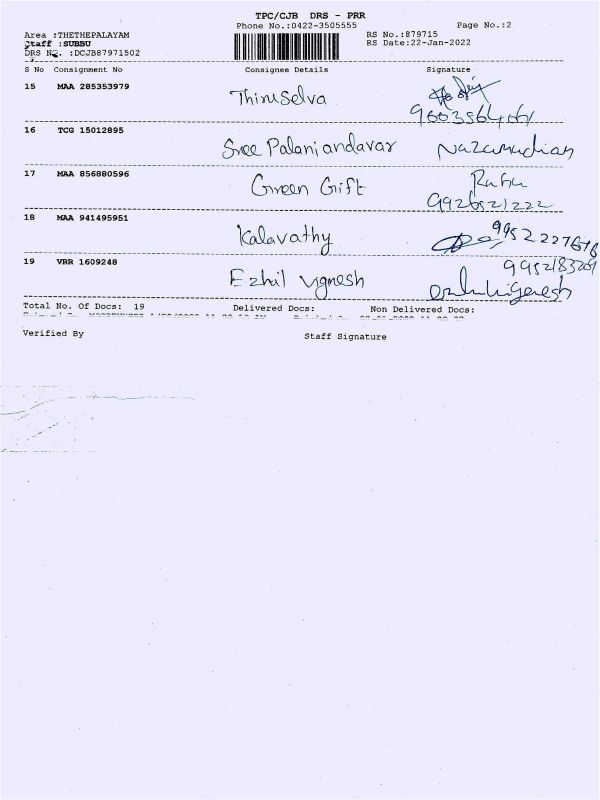 TPC/CJB DRS - PRR
Phone No.:0422-3505555 Page No.:2
Area :THETHEPALAYAM RS No.:879715
Staff :SUBBU RS Date:22-Jan-2022
DRS No. :DCJB87971502
S No Consignment No Consignee Details Signature
15 MAA 285353979 Thiruselva
16 TCG 15012895 Sree Palaniandavar
17 MAA 856880596 Green Gift
9926521222
18 MAA 941495951 Kalavathy 9952227676
19 VRR 1609248 Ezhil vignesh
Total No. Of Docs: 19 Delivered Docs: Non Delivered Docs:
Verified By Staff Signature